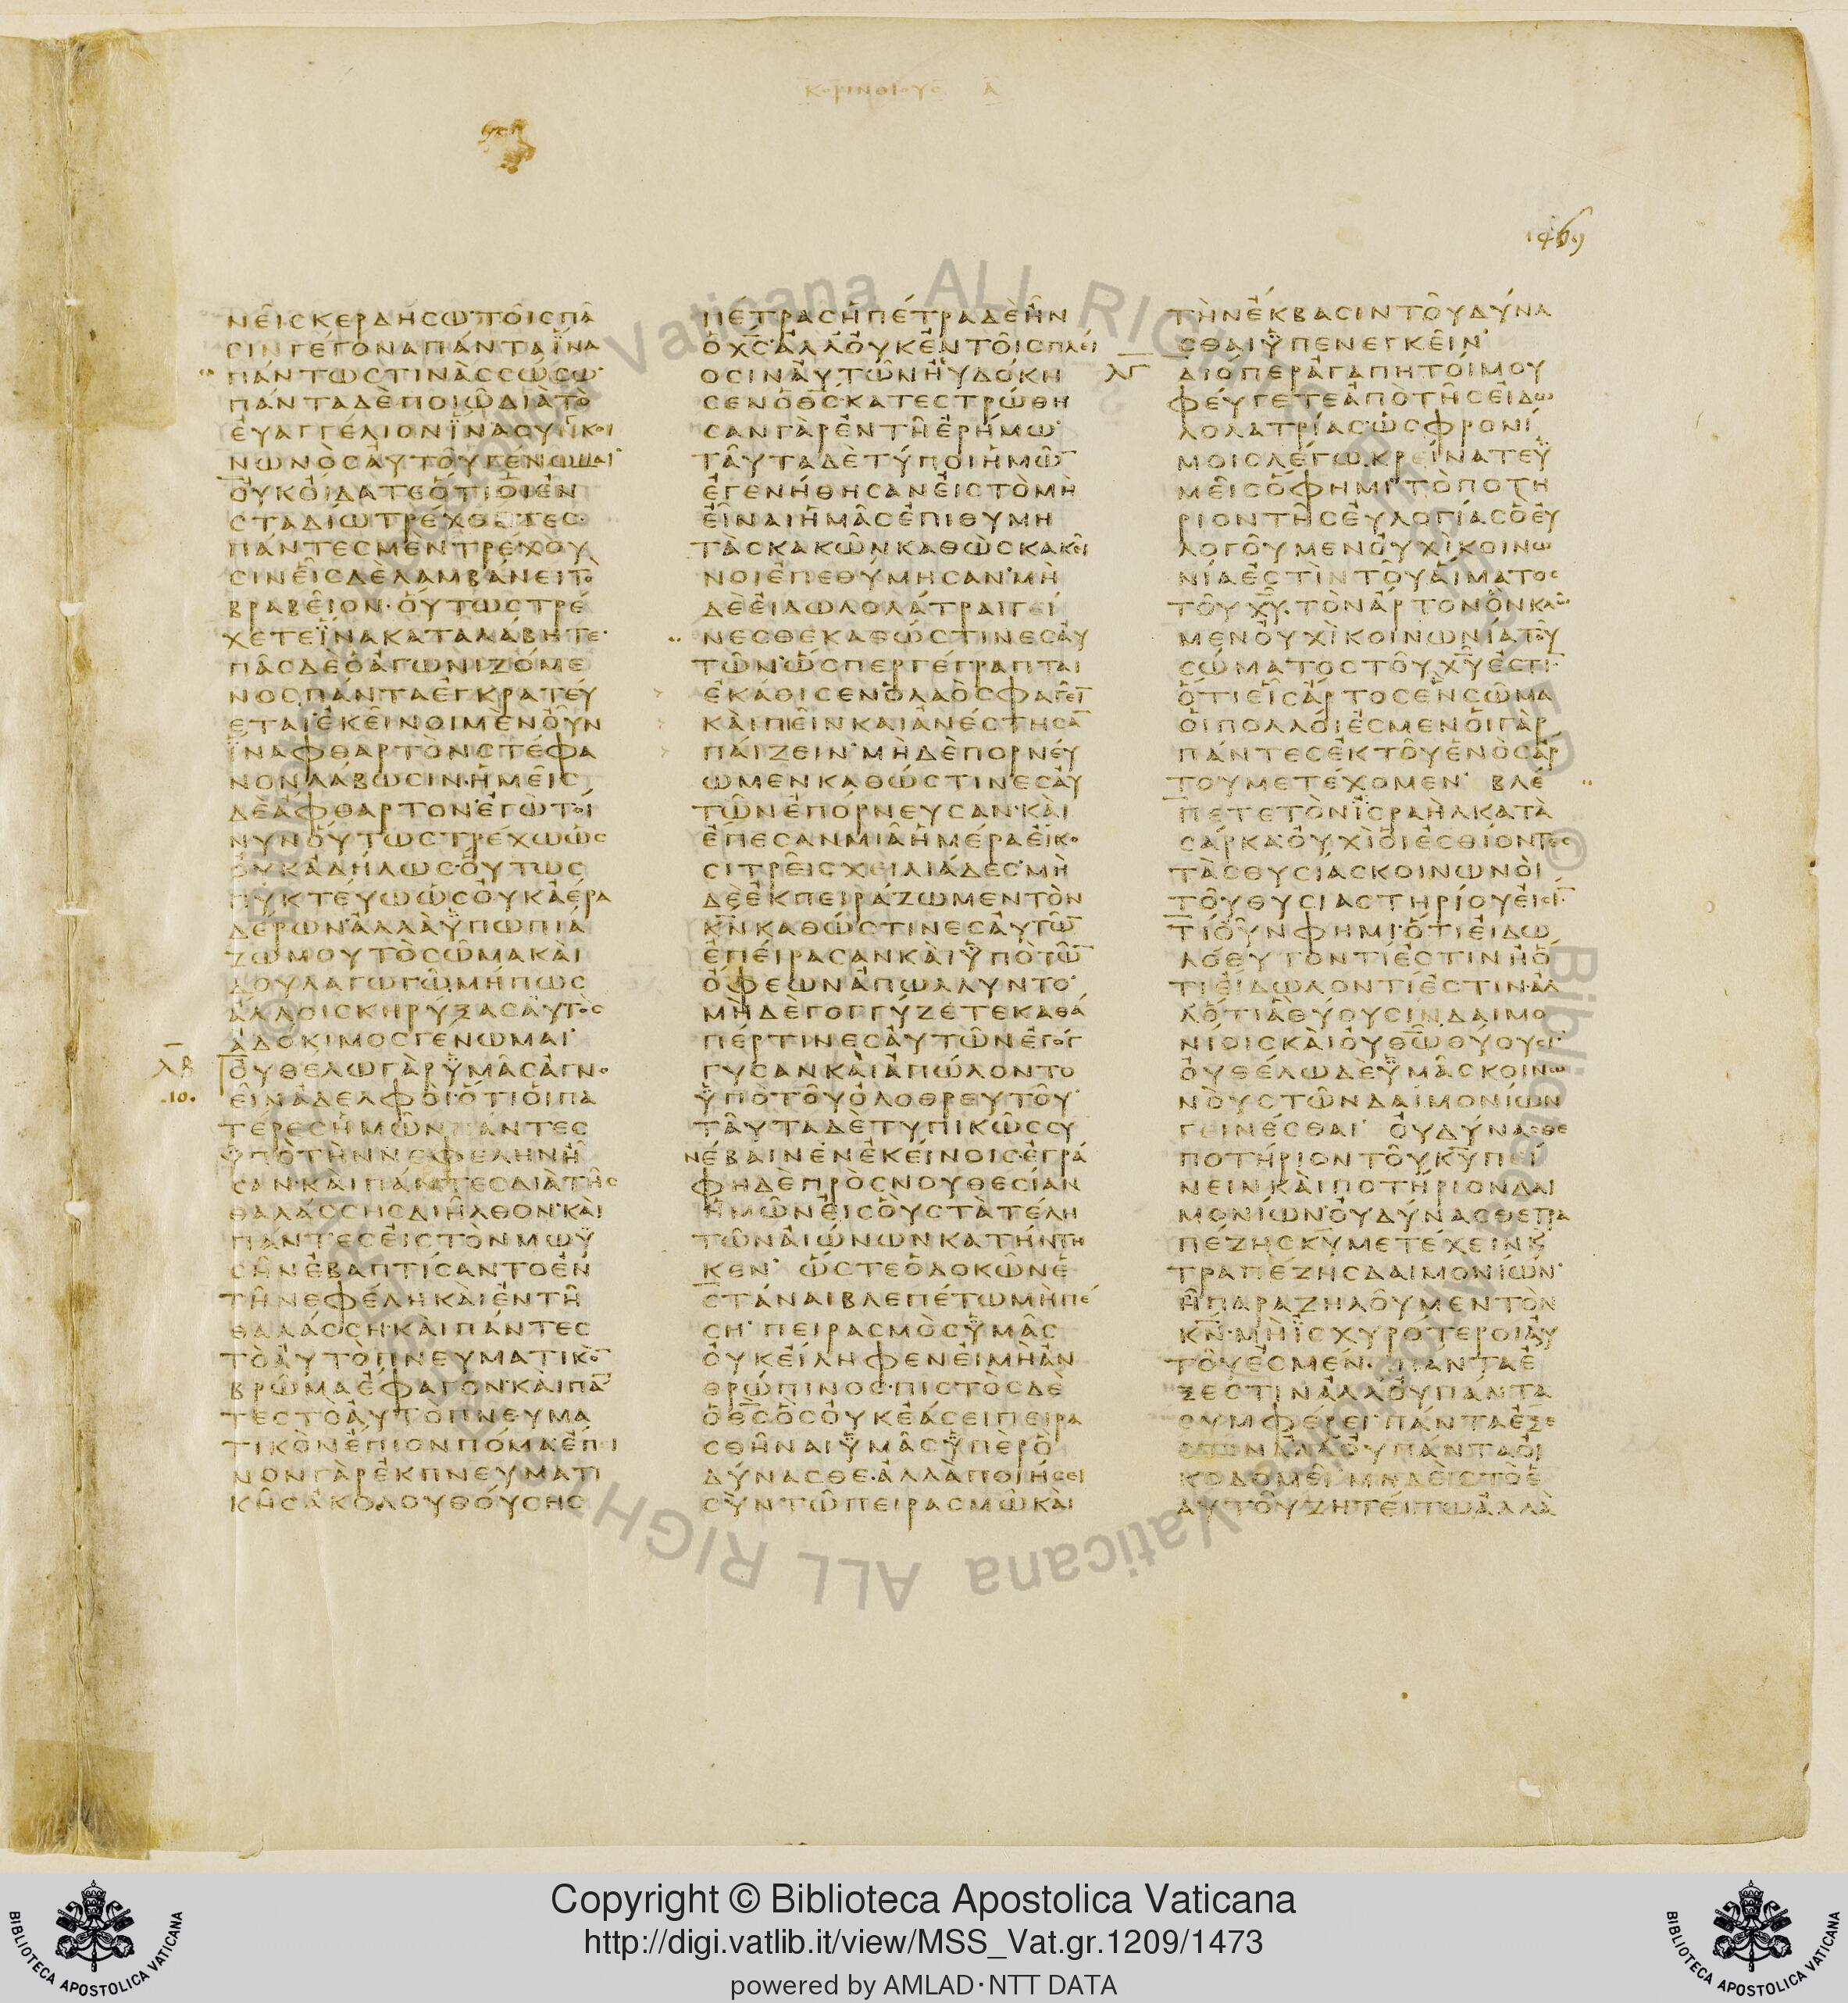 ΚΟΡΙΝΘΙΟΥΣ Α
1469
ΝΕΙϹΚΕΡΔΗϹΩΤΟΙϹΠΑ
ϹΙΝΓΕΓΟΝΑΠΑΝΤΑΪΝΑ
ΠΑΝΤΩϹΤΙΝΑϹϹΩϹΩ
ΠΑΝΤΑΔΕΠΟΙΩΔΙΑΤΟ
ΕΥΑΓΓΕΛΙΟΝΪΝΑϹΥΓΚΟΙ
ΝΩΝΟϹΑΥΤΟΥΓΕΝΩΜΑΙ
ΟΥΚΟΙΔΑΤΕΟΤΙΟΙΕΝ
ϹΤΑΔΙΩΤΡΕΧΟΝΤΕϹ
ΠΑΝΤΕϹΜΕΝΤΡΕΧΟΥ
ϹΙΝΕΙϹΔΕΛΑΜΒΑΝΕΙΤΟ
ΒΡΑΒΕΙΟΝ·ΟΥΤΩϹΤΡΕ
ΧΕΤΕΪΝΑΚΑΤΑΛΑΒΗΤΕ·
ΠΑϹΔΕΟΑΓΩΝΙΖΟΜΕ
ΝΟϹΠΑΝΤΑΕΓΚΡΑΤΕΥ
ΕΤΑΙΕΚΕΙΝΟΙΜΕΝΟΥΝ
ΪΝΑΦΘΑΡΤΟΝϹΤΕΦΑ
ΝΟΝΛΑΒΩϹΙΝ·ΗΜΕΙϹ
ΔΕΑΦΘΑΡΤΟΝΕΓΩΤΟΙ
ΝΥΝΟΥΤΩϹΤΡΕΧΩΩϹ
ΟΥΚΑΔΗΛΩϹ·ΟΥΤΩϹ
ΠΥΚΤΕΥΩΩϹΟΥΚΑΕΡΑ
ΔΕΡΩΝΑΛΛΑΫΠΩΠΙΑ
ΖΩΜΟΥΤΟϹΩΜΑΚΑΙ
ΔΟΥΛΑΓΩΓΩΜΗΠΩϹ
ΑΛΛΟΙϹΚΗΡΥΞΑϹΑΥΤΟϹ
ΑΔΟΚΙΜΟϹΓΕΝΩΜΑΙ
ΛΒ ΟΥΘΕΛΩΓΑΡΫΜΑϹΑΓΝΟ
.10. ΕΙΝΑΔΕΛΦΟΙ·ΟΤΙΟΙΠΑ
ΤΕΡΕϹΗΜΩΝ ΑΝΤΕϹ
ΫΠΟΤΗΝΝΕΦΕΛΗΝΗ
ϹΑΝ·ΚΑΙΠΑΝΤΕϹΔΙΑΤΗϹ
ΘΑΛΑϹϹΗϹΔΙΗΛΘΟΝ·ΚΑΙ
ΠΑΝΤΕϹΕΙϹΤΟΝΜΩΫ
ϹΗΝΕΒΑΠΤΙϹΑΝΤΟΕΝ
ΤΗΝΕΦΕΛΗΚΑΙΕΝΤΗ
ΘΑΛΑϹϹΗ·ΚΑΙΠΑΝΤΕϹ
ΤΟΑΥΤΟΠΝΕΥΜΑΤΙΚΟ̅
ΒΡΩΜΑΕΦΑΓΟΝ·ΚΑΙΠΑ̅
ΤΕϹΤΟΑΥΤΟΠΝΕΥΜΑ
ΤΙΚΟΝΕΠΙΟΝΠΟΜΑ·ΕΠΙ
ΝΟΝΓΑΡΕΚΠΝΕΥΜΑΤΙ
ΚΗϹΑΚΟΛΟΥΘΟΥϹΗϹ
ΠΕΤΡΑϹΗΠΕΤΡΑΔΕΗΝ
ΟΧ̅Ϲ̅·ΑΛΛΟΥΚΕΝΤΟΙϹΠΛΕΙ
ΟϹΙΝΑΥΤΩΝΗΥΔΟΚΗ
ϹΕΝΟΘ̅Ϲ̅·ΚΑΤΕϹΤΡΩΘΗ
ϹΑΝΓΑΡΕΝΤΗΕΡΗΜΩ
ΤΑΥΤΑΔΕΤΥΠΟΙΗΜΩ̅
ΕΓΕΝΗΘΗϹΑΝΕΙϹΤΟΜΗ
ΕΙΝΑΙΗΜΑϹΕΠΙΘΥΜΗ
ΤΑϹΚΑΚΩΝΚΑΘΩϹΚΑΚΕΙ
ΝΟΙΕΠΕΘΥΜΗϹΑΝ·ΜΗ
ΔΕΕΙΔΩΛΟΛΑΤΡΑΙΓΕΙ
ΝΕϹΘΕΚΑΘΩϹΤΙΝΕϹΑΥ
ΤΩΝ·ΩϹΠΕΡΓΕΓΡΑΠΤΑΙ
ΕΚΑΘΙϹΕΝΟΛΑΟϹΦΑΓΕΙ̅
ΚΑΙΠΙΕΙΝΚΑΙΑΝΕϹΤΗϹΑ̅
ΠΑΙΖΕΙΝ·ΜΗΔΕΠΟΡΝΕΥ
ΩΜΕΝΚΑΘΩϹΤΙΝΕϹΑΥ
ΤΩΝΕΠΟΡΝΕΥϹΑΝ·ΚΑΙ
ΕΠΕϹΑΝΜΙΑΗΜΕΡΑΕΙΚΟ
ϹΙΤΡΕΙϹΧΕΙΛΙΑΔΕϹ·ΜΗ
ΔΕΕΚΠΕΙΡΑΖΩΜΕΝΤΟΝ
Κ̅Ν̅ΚΑΘΩϹΤΙΝΕϹΑΥΤΩ̅
ΕΠΕΙΡΑϹΑΝΚΑΙΫΠΟΤΩ̅
ΟΦΕΩΝΑΠΩΛΛΥΝΤΟ·
ΜΗΔΕΓΟΓΓΥΖΕΤΕΚΑΘΑ
ΠΕΡΤΙΝΕϹΑΥΤΩΝΕΓΟΓ
ΓΥϹΑΝΚΑΙΑΠΩΛΟΝΤΟ
ΫΠΟΤΟΥΟΛΟΘΡΕΥΤΟΥ·
ΤΑΥΤΑΔΕΤΥΠΙΚΩϹϹΥ
ΝΕΒΑΙΝΕΝΕΚΕΙΝΟΙϹ·ΕΓΡΑ
ΦΗΔΕΠΡΟϹΝΟΥΘΕϹΙΑΝ
ΗΜΩΝΕΙϹΟΥϹΤΑΤΕΛΗ
ΤΩΝΑΙΩΝΩΝΚΑΤΗΝΤΗ
ΚΕΝ· ΩϹΤΕΟΔΟΚΩΝΕ
ϹΤΑΝΑΙΒΛΕΠΕΤΩΜΗΠΕ
ϹΗ· ΠΕΙΡΑϹΜΟϹΫΜΑϹ
ΟΥΚΕΙΛΗΦΕΝΕΙΜΗΑΝ
ΘΡΩΠΙΝΟϹ·ΠΙϹΤΟϹΔΕ
ΟΘ̅Ϲ̅ΟϹΟΥΚΕΑϹΕΙΠΕΙΡΑ
ϹΘΗΝΑΙΫΜΑϹΫΠΕΡΟ
ΔΥΝΑϹΘΕ·ΑΛΛΑΠΟΙΗϹΕΙ
ϹΥΝΤΩΠΕΙΡΑϹΜΩΚΑΙ
ΤΗΝΕΚΒΑϹΙΝΤΟΥΔΥΝΑ
ϹΘΑΙΫΠΕΝΕΓΚΕΙΝ·
ΛΓ ΔΙΟΠΕΡΑΓΑΠΗΤΟΙΜΟΥ
ΦΕΥΓΕΤΕΑΠΟΤΗϹΕΙΔΩ
ΛΟΛΑΤΡΙΑϹ·ΩϹΦΡΟΝΙ
ΜΟΙϹΛΕΓΩ·ΚΡΕΙΝΑΤΕΫ
ΜΕΙϹΟΦΗΜΙ·ΤΟΠΟΤΗ
ΡΙΟΝΤΗϹΕΥΛΟΓΙΑϹΟΕΥ
ΛΟΓΟΥΜΕΝΟΥΧΙΚΟΙΝΩ
ΝΙΑΕϹΤΙΝΤΟΥΑΙΜΑΤΟϹ
ΤΟΥΧ̅Υ̅·ΤΟΝΑΡΤΟΝΟΝΚΛΩ
ΜΕΝΟΥΧΙΚΟΙΝΩΝΙΑΤΟΥ
ϹΩΜΑΤΟϹΤΟΥΧ̅Υ̅ΕϹΤΙ̅
ΟΤΙΕΙϹΑΡΤΟϹΕΝϹΩΜΑ
ΟΙΠΟΛΛΟΙΕϹΜΕΝΟΙΓΑΡ
ΠΑΝΤΕϹΕΚΤΟΥΕΝΟϹΑΡ
ΤΟΥΜΕΤΕΧΟΜΕΝ· ΒΛΕ
ΠΕΤΕΤΟΝΪϹΡΑΗΛΚΑΤΑ
ϹΑΡΚΑ·ΟΥΧΙΟΙΕϹΘΙΟΝΤΕϹ
ΤΑϹΘΥϹΙΑϹΚΟΙΝΩΝΟΙ
ΤΟΥΘΥϹΙΑϹΤΗΡΙΟΥΕΙϹΙ̅
ΤΙΟΥΝΦΗΜΙ·ΟΤΙΕΙΔΩ
ΛΟΘΥΤΟΝΤΙΕϹΤΙΝΗΟ
ΤΙΕΙΔΩΛΟΝΤΙΕϹΤΙΝ·ΑΛ
ΛΟΤΙΑΘΥΟΥϹΙΝΔΑΙΜΟ
ΝΙΟΙϹΚΑΙΟΥΘ̅Ω̅ΘΥΟΥϹΙ·
ΟΥΘΕΛΩΔΕΫΜΑϹΚΟΙΝΩ
ΝΟΥϹΤΩΝΔΑΙΜΟΝΙΩΝ
ΓΕΙΝΕϹΘΑΙ· ΟΥΔΥΝΑϹΘΕ
ΠΟΤΗΡΙΟΝΤΟΥΚ̅Υ̅ΠΕΙ
ΝΕΙΝΚΑΙΠΟΤΗΡΙΟΝΔΑΙ
ΜΟΝΙΩΝ·ΟΥΔΥΝΑϹΘΕΤΡΑ
ΠΕΖΗϹΚ̅Υ̅ΜΕΤΕΧΕΙΝΚ
ΤΡΑΠΕΖΗϹΔΑΙΜΟΝΙΩΝ·
ΗΠΑΡΑΖΗΛΟΥΜΕΝΤΟΝ
Κ̅Ν̅·ΜΗΪϹΧΥΡΟΤΕΡΟΙΑΥ
ΤΟΥΕϹΜΕΝ· ΠΑΝΤΑΕ
ΞΕϹΤΙΝΑΛΛΟΥΠΑΝΤΑ
ϹΥΜΦΕΡΕΙ·ΠΑΝΤΑΕΞΕ
ϹΤΙΝΑΛΛΟΥΠΑΝΤΑΟΙ
ΚΟΔΟΜΕΙ·ΜΗΔΕΙϹΤΟΕ
ΑΥΤΟΥΖΗΤΕΙΤΩΑΛΛΑ
Vaticana ALL RIGHTS
© Biblioteca
Vaticana ALL RIGHTS
Copyright © Biblioteca Apostolica Vaticana
http://digi.vatlib.it/view/MSS_Vat.gr.1209/1473
powered by AMLAD·NTT DATA
BIBLIOTECA APOSTOLICA VATICANA
BIBLIOTECA APOSTOLICA VATICANA